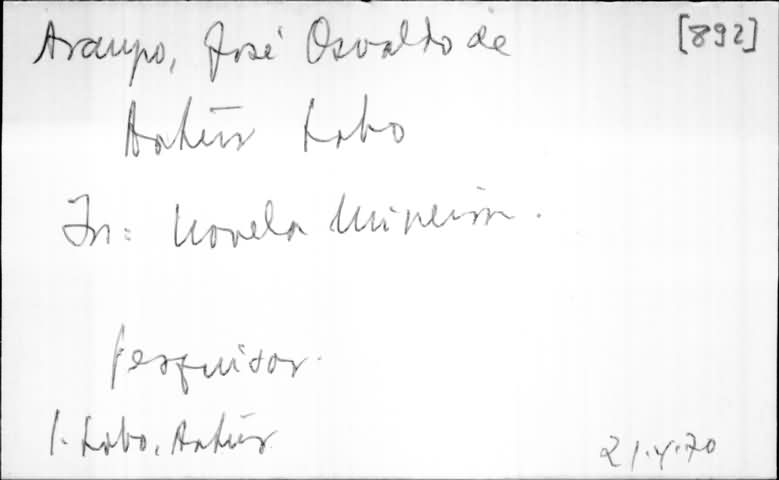 Araujo, José Osvaldo de [892]
Artur Lobo
In: Novela Mineira.
Pesquisar.
1. Lobo, Artur
21.4.70